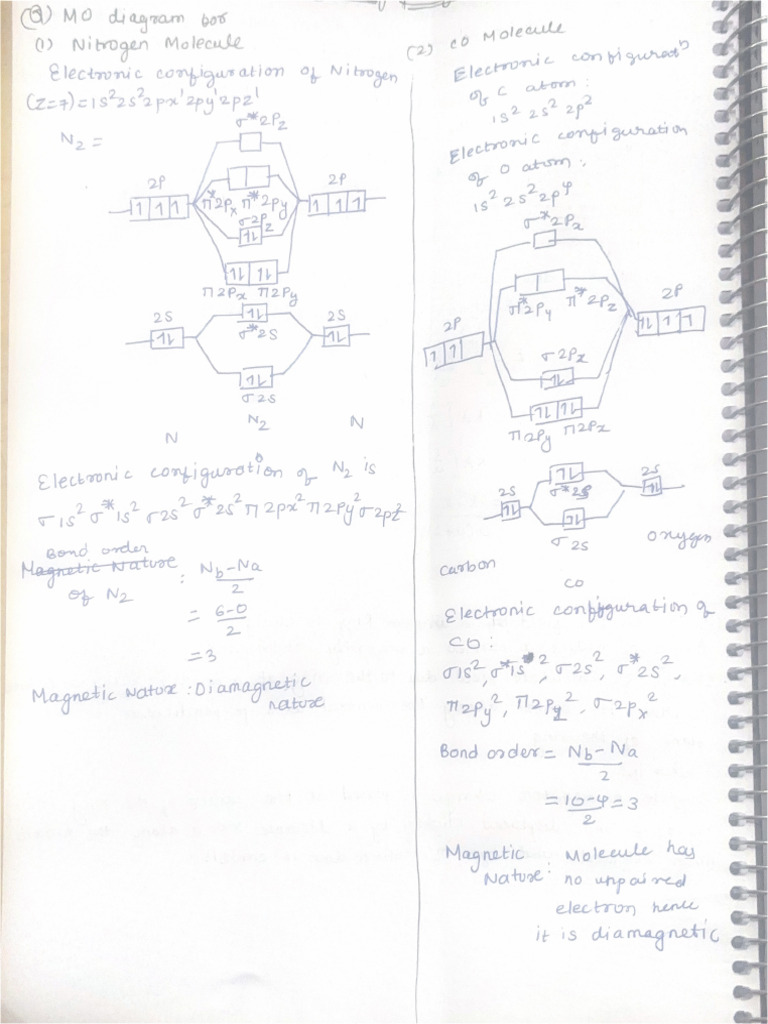 Q) MO diagram for
(1) Nitrogen Molecule
Electronic configuration of Nitrogen
(Z=7) = 1s² 2s² 2px¹ 2py¹ 2pz¹
N₂ =
σ*2Pz
2P
2P
π*2Px π*2Py
σ2Pz
π2Px π2Py
2S
2S
σ*2S
σ2S
N
N₂
N
Electronic configuration of N₂ is
σ1s² σ*1s² σ2s² σ*2s² π2px² π2py² σ2pz²
Bond order
Magnetic Nature
of N₂ : Nb-Na
2
= 6-0
2
= 3
Magnetic Nature : Diamagnetic
nature
(2) CO Molecule
Electronic configuratn
of C atom :
1s² 2s² 2p²
Electronic configuration
of O atom :
1s² 2s² 2p⁴
σ*2Px
π*2Py π*2Pz
2P
2P
σ2Px
π2Py π2Px
2S
2S
σ*2S
σ2S
carbon
CO
oxygen
Electronic configuration of
CO :
σ1s², σ*1s*², σ2s², σ*2s²,
π2py², π2py², σ2px²
Bond order = Nb-Na
2
= 10-4 = 3
2
Magnetic
Nature : Molecule has
no unpaired
electron hence
it is diamagnetic